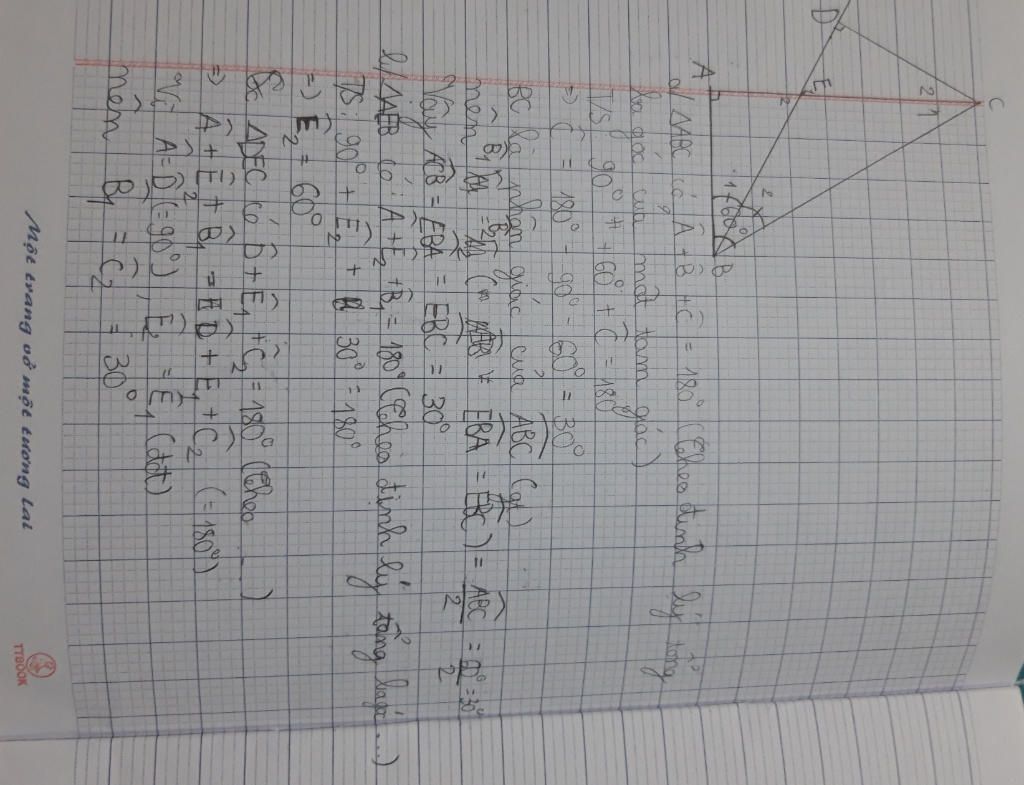 D
A
E
2
C
2 1
1 60° 2
B
a/ ΔABC có Â + B̂ + Ĉ = 180° (theo định lý tổng
ba góc của một tam giác)
TS: 90° + 60° + Ĉ = 180°
⇒ Ĉ = 180° - 90° - 60° = 30°
BC là phân giác của ABC (gt)
nên B̂1 = B̂2 ( EBA = EBC ) = ABC/2 = 60°/2 = 30°
Vậy ACB = EBA = EBC = 30°
b/ ΔAEB có: Â + Ê2 + B̂1 = 180° (theo định lý tổng ba góc ...)
TS: 90° + Ê2 + 30° = 180°
⇒ Ê2 = 60°
ΔDEC có D̂ + Ê1 + Ĉ2 = 180° (theo ...)
⇒ Â + Ê2 + B̂1 = D̂ + Ê1 + Ĉ2 (= 180°)
Vì Â = D̂ (= 90°), Ê2 = Ê1 (đđ)
nên B̂1 = Ĉ2 = 30°
Một trang vở một tương lai
TTBOOK